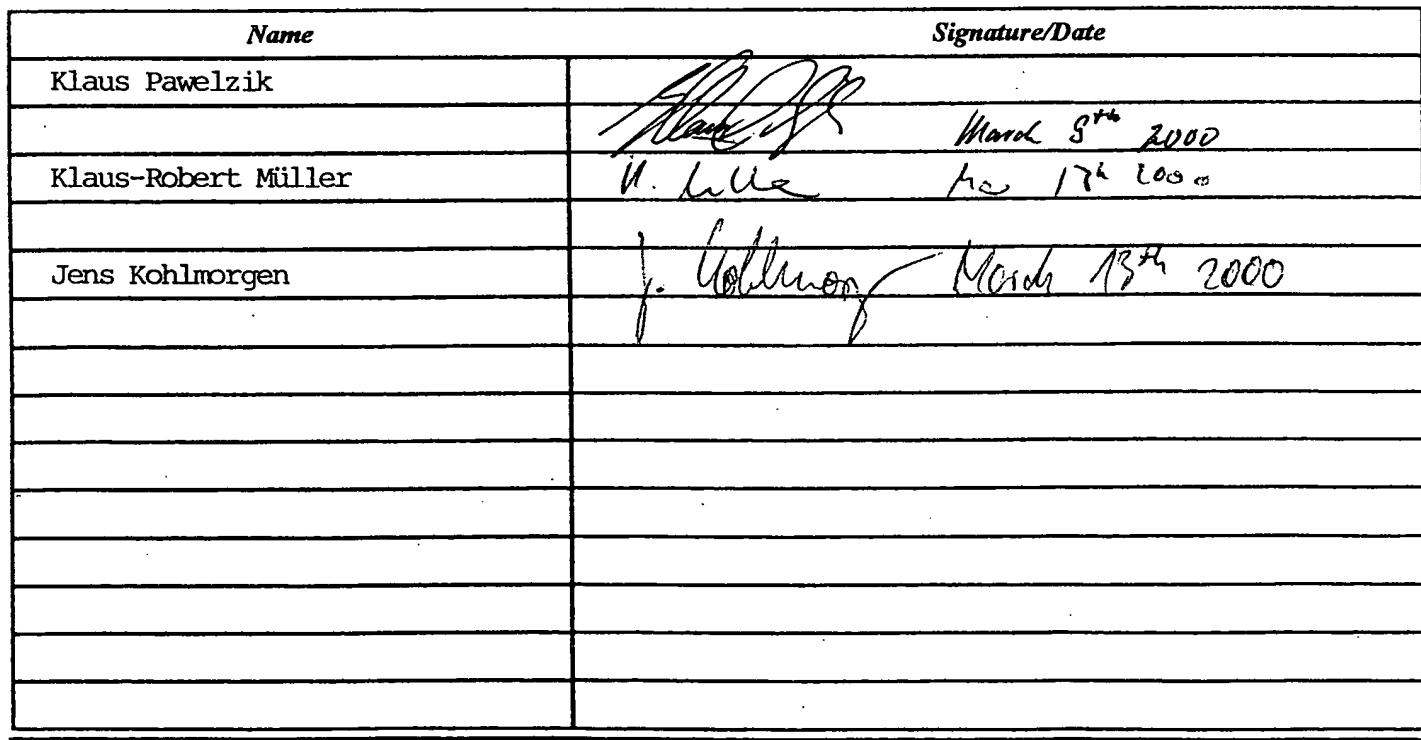 Name Signature/Date
Klaus Pawelzik
March 9th 2000
Klaus-Robert Müller 17th 2000
Jens Kohlmorgen J. Kohlmorgen March 13th 2000